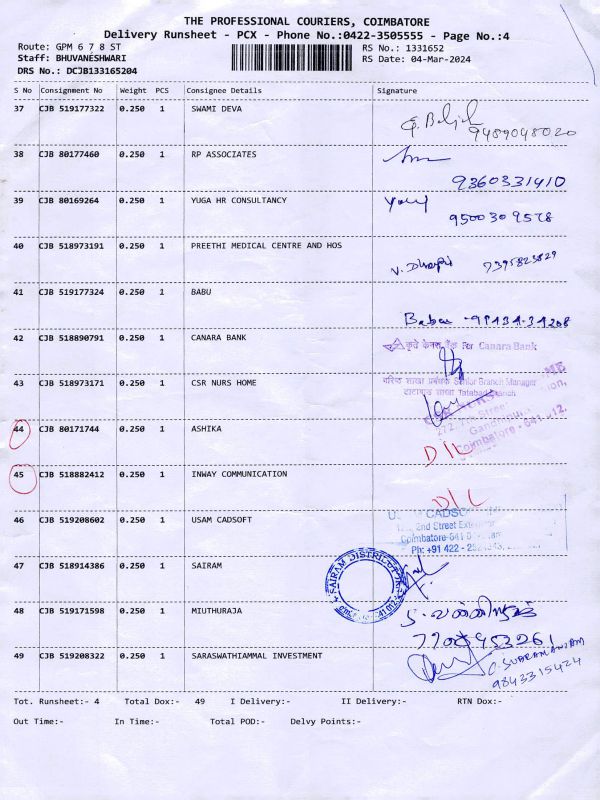 THE PROFESSIONAL COURIERS, COIMBATORE
Delivery Runsheet - PCX - Phone No.:0422-3505555 - Page No.:4
Route: GPM 6 7 8 ST RS No.: 1331652
Staff: BHUVANESHWARI RS Date: 04-Mar-2024
DRS No.: DCJB133165204
S No Consignment No Weight PCS Consignee Details Signature
37 CJB 519177322 0.250 1 SWAMI DEVA
9489048020
38 CJB 80177460 0.250 1 RP ASSOCIATES
9360331410
39 CJB 80169264 0.250 1 YUGA HR CONSULTANCY
40 CJB 518973191 0.250 1 PREETHI MEDICAL CENTRE AND HOS
7395823829
41 CJB 519177324 0.250 1 BABU
Babu -98434-34208
42 CJB 518890791 0.250 1 CANARA BANK
कृते केनरा बैंक For Canara Bank
43 CJB 518973171 0.250 1 CSR NURS HOME
वरिष्ठ शाखा प्रबंधक Senior Branch Manager
टाटाबाद शाखा Tatabad Branch
44 CJB 80171744 0.250 1 ASHIKA
Coimbatore - 641 012.
D/L
45 CJB 518882412 0.250 1 INWAY COMMUNICATION
D/L
46 CJB 519208602 0.250 1 USAM CADSOFT
CADSO
2nd Street
Coimbatore-641
Ph: +91 422 -
47 CJB 518914386 0.250 1 SAIRAM
SAIRAM DISTRIBUTOR
48 CJB 519171598 0.250 1 MIUTHURAJA
49 CJB 519208322 0.250 1 SARASWATHIAMMAL INVESTMENT
9843315424
Tot. Runsheet:- 4 Total Dox:- 49 I Delivery:- II Delivery:- RTN Dox:-
Out Time:- In Time:- Total POD:- Delvy Points:-